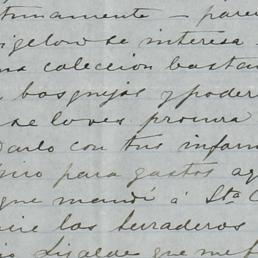 tinuamente — pare
igelow se interesa
na coleccion bastan
bosquejos y poder
se loves procura
darlo con tus infor
nico para gastos ag
que mandé á Sta C
los terraderos
Lizalde que me f